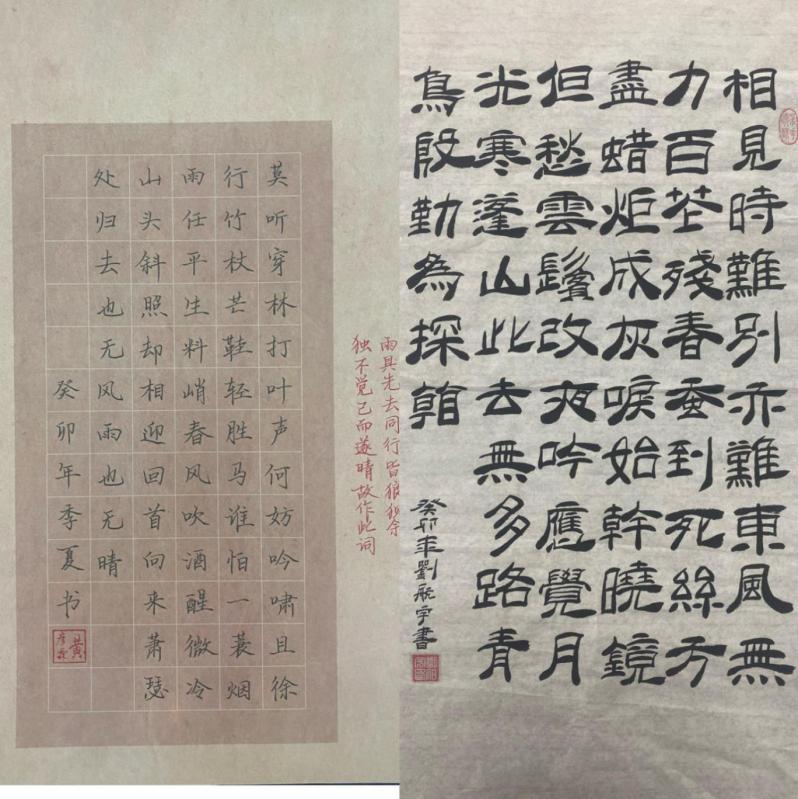 莫听穿林打叶声何妨吟啸且徐
行竹杖芒鞋轻胜马谁怕一蓑烟
雨任平生料峭春风吹酒醒微冷
山头斜照却相迎回首向来萧瑟
处归去也无风雨也无晴
癸卯年季夏书
雨具先去同行皆狼狈余
独不觉已而遂晴故作此词
相見時難别亦難東風無
力百花殘春蚕到死絲方
盡蜡炬成灰淚始幹曉鏡
但愁雲鬢改夜吟應覺月
光寒蓬山此去無多路青
鳥殷勤為探看
癸卯年劉航宇書